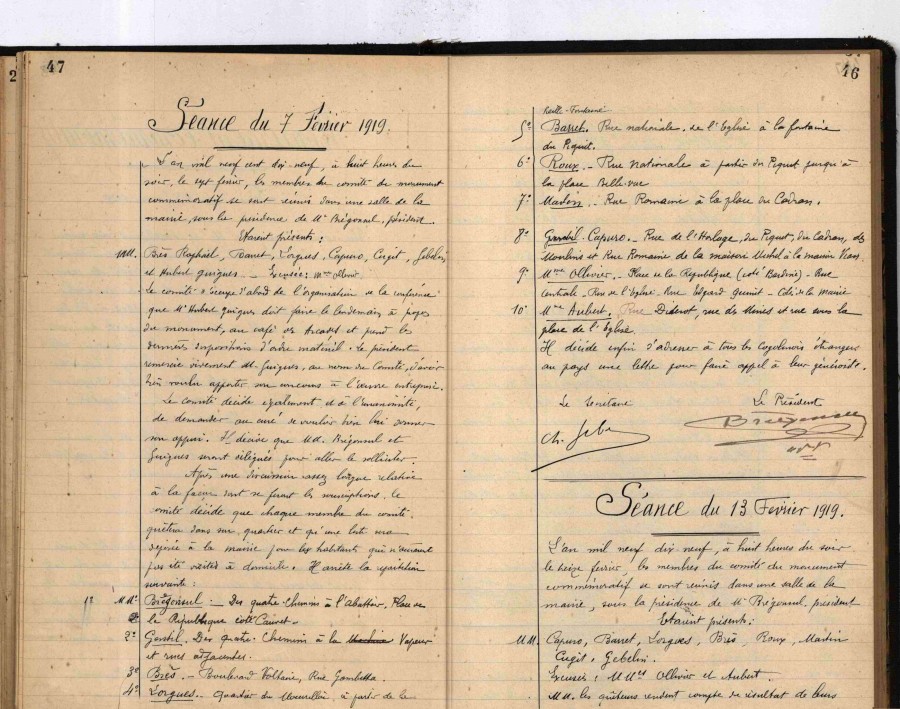 2
47
Séance du 7 Février 1919.
L'an mil neuf cent dix-neuf, à huit heures du
soir, le sept février, les membres du comité du monument
commémoratif se sont réunis dans une salle de la
mairie sous la présidence de Mr Brégonsul, président.
Etaient présents :
MM. Brès Raphaël, Barret, Lorgues, Capuro, Cugit, Gebelin
et Hubert Guigues – Excusée : Mme
Le comité s'occupe d'abord de l'organisation de la conférence
que Mr Hubert Guigues doit faire le lendemain à
du monument, au café des Arcades et prend les
dernières dispositions d'ordre matériel. Le président
remercie vivement M. Guigues, au nom du Comité, d'avoir
bien voulu apporter son concours à l'œuvre entreprise.
Le comité décide également et à l'unanimité,
de demander au curé de vouloir bien lui donner
son appui. Il décide que MM. Brégonsul et
Guigues seront délégués pour aller le solliciter.
Après une discussion assez longue relative
à la façon dont se feront les souscriptions, le
comité décide que chaque membre du comité
quêtera dans son quartier et qu'une liste sera
déposée à la mairie pour les habitants qui n'auraient
pas été visités à domicile. Il arrête la répartition
suivante :
1° M.M. Brégonsul – Des quatre Chemins à l'abattoir, Place de
la République côté Cauvet.
2° Gentil. Des quatre Chemins à la Vapeur
et rues adjacentes.
3° Brès. – Boulevard Voltaire, Rue Gambetta.
4° Lorgues. Quartier du à partir de la
46
Vieille-Fontaine
5° Barret. Rue nationale, de l'Eglise à la fontaine
du Piquet.
6° Roux. – Rue Nationale à partir du Piquet jusqu'à
la place Belle-vue
7° Martin. – Rue Romaine à la place du Cadran.
8° Capuro. – Rue de l'Horloge, du Piquet, du Cadran, des
Moulins et Rue Romaine de la maison Michel à la maison
9° Mme Ollivier. – Place de la République (côté ) – Rue
Centrale – Rue de l'Eglise – Rue Edgard Quinet – Côté de la Mairie
10° Mme Aubert. Rue Diderot, rue des Mines et rue sous la
place de l'Eglise.
Il décide enfin d'adresser à tous les Cogolinois étrangers
au pays une lettre pour faire appel à leur générosité.
Le Secrétaire
Le Président
Ch. Gebe
Brégonsul
Séance du 13 Février 1919.
L'an mil neuf dix neuf, à huit heures du soir
le treize février, les membres du comité du monument
commémoratif se sont réunis dans une salle de la
mairie, sous la présidence de Mr Brégonsul, président
Etaient présents :
MM. Capuro, Barret, Lorgues, Brès, Roux, Martin
Cugit, Gebelin.
Excusés : MMes Ollivier et Aubert.
MM. les quêteurs rendent compte du résultat de leurs